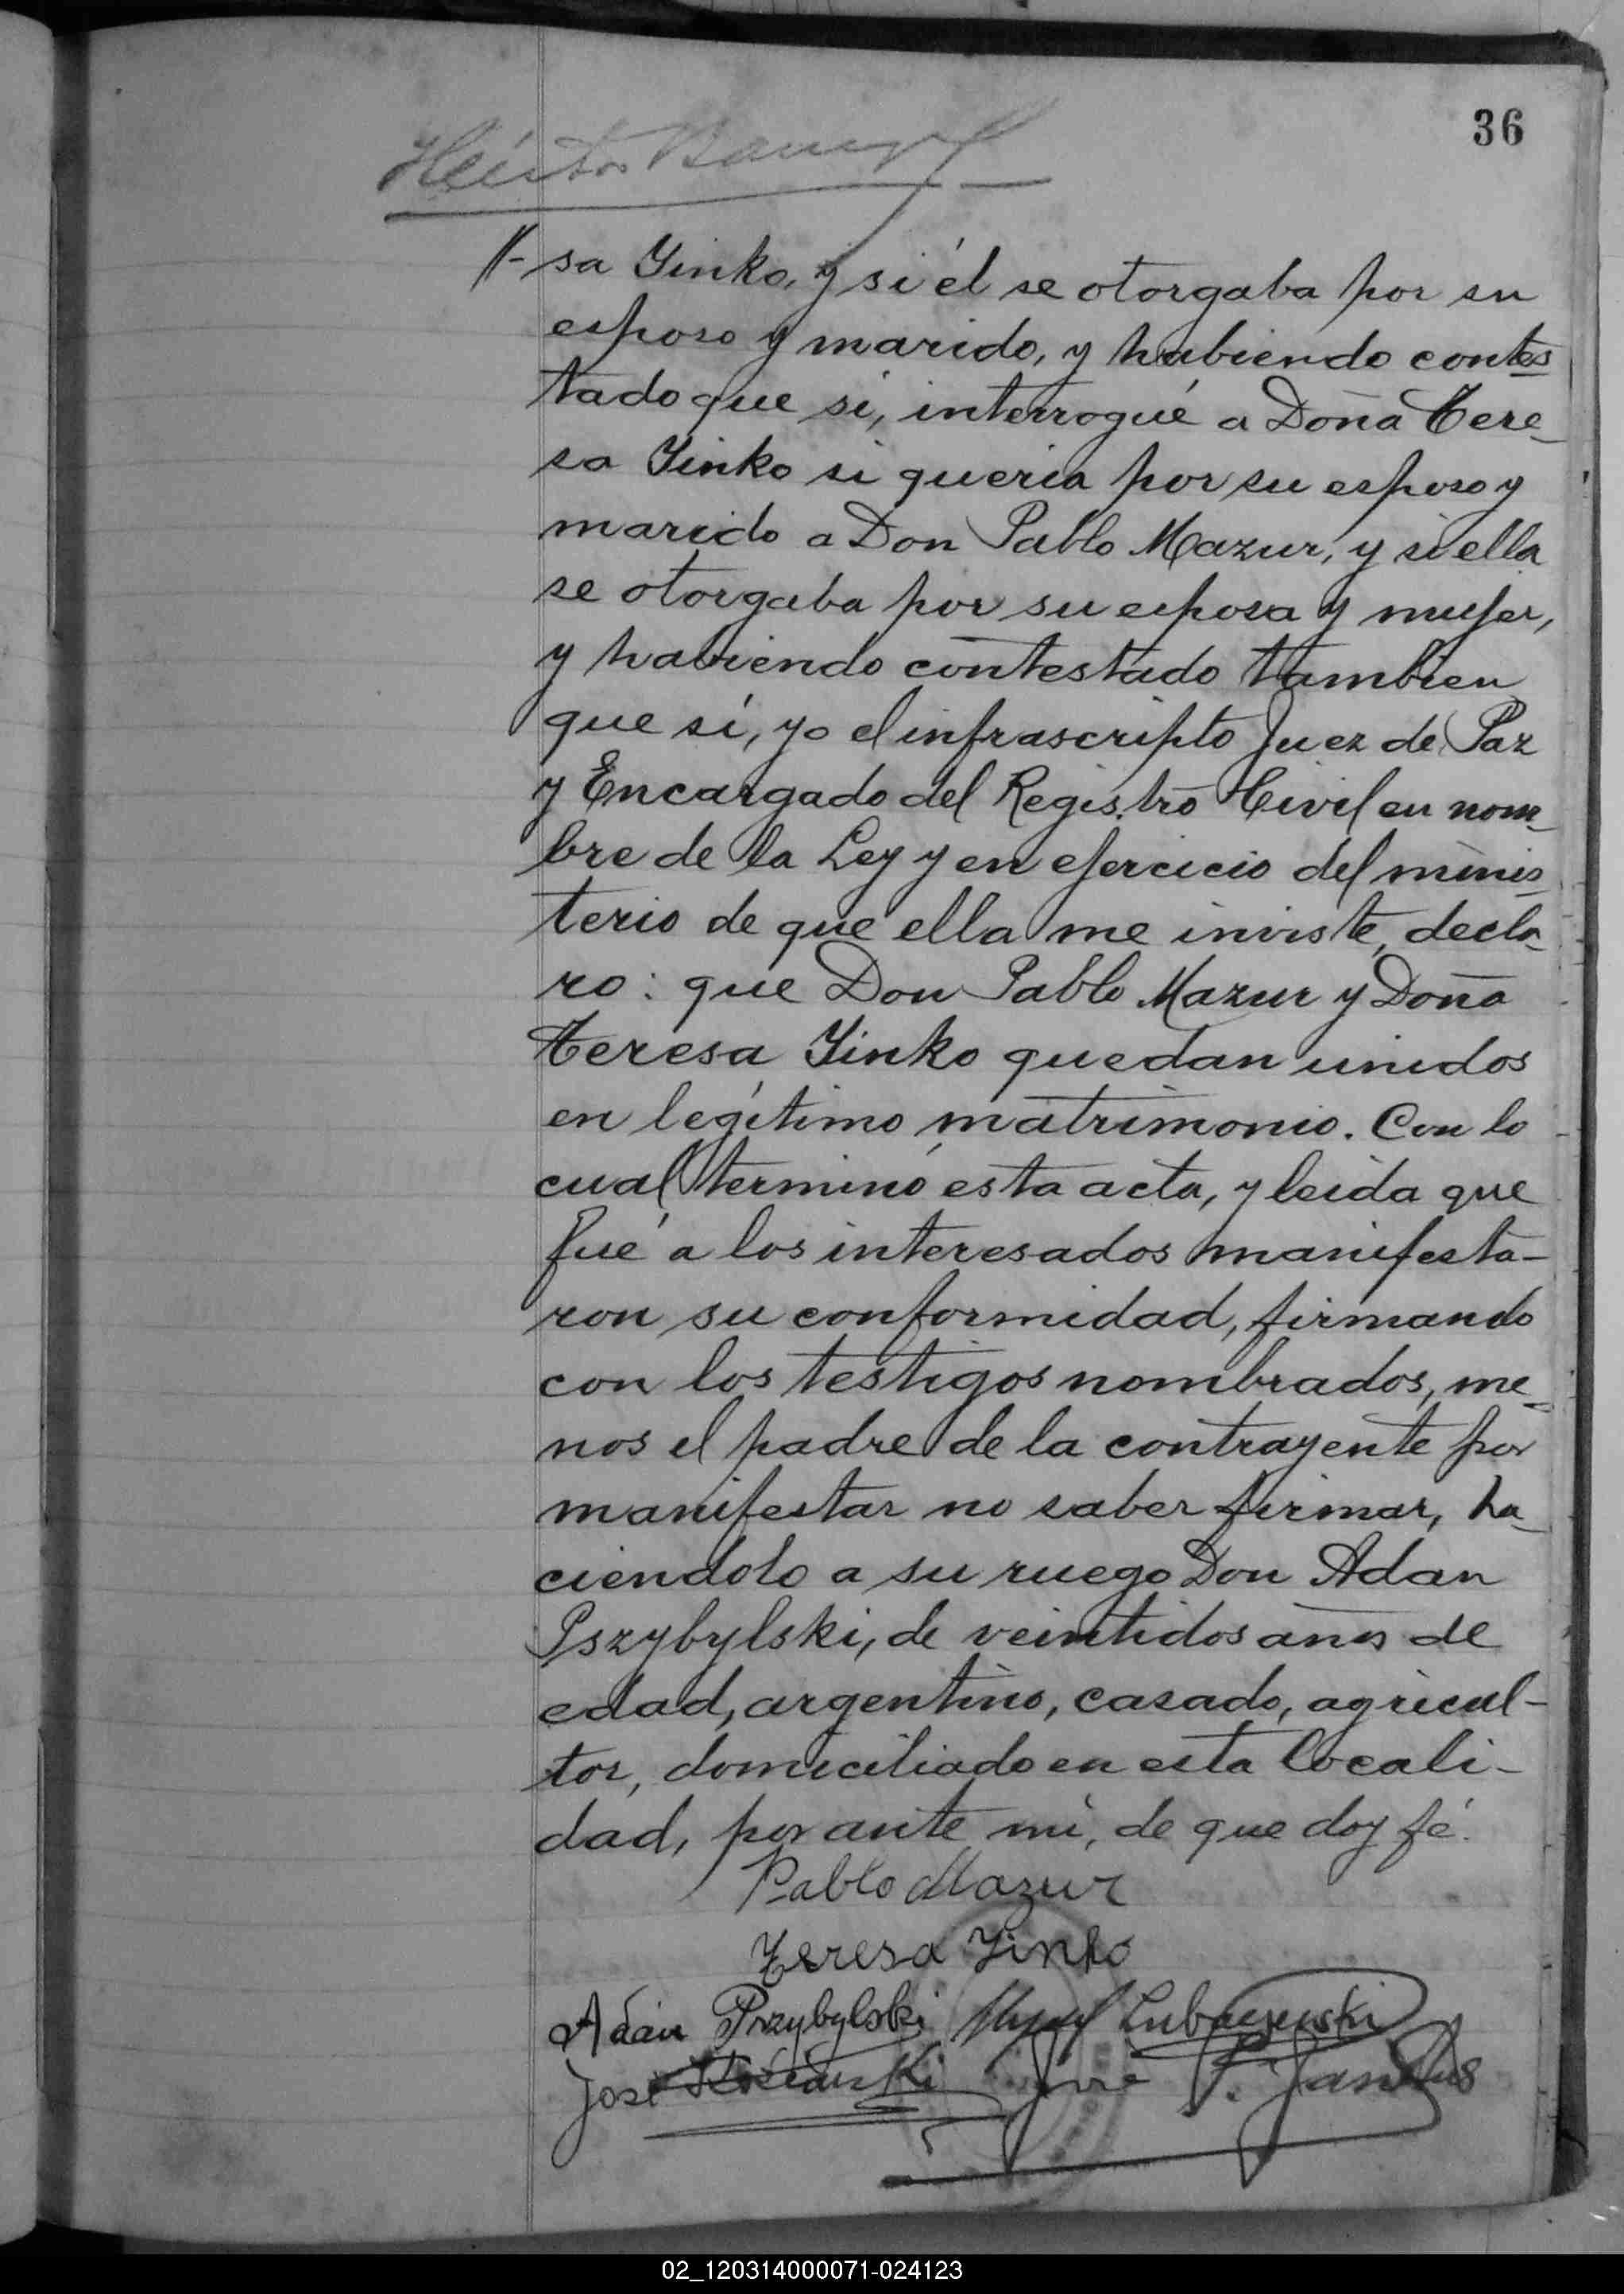 36
Héctor
//- sa Yinko, y si él se otorgaba por su
esposo y marido, y habiendo contes
tado que si, interrogué a Doña Tere-
sa Yinko si queria por su esposo y
marido a Don Pablo Mazur, y si ella
se otorgaba por su esposa y mujer,
y habiendo contestado tambien
que sí, yo el infrascripto Juez de Paz
y Encargado del Registro Civil en nom-
bre de la Ley y en ejercicio del minis-
terio de que ella me inviste, decla-
ro: que Don Pablo Mazur y Doña
Teresa Yinko quedan unidos
en legítimo matrimonio. Con lo
cual terminó esta acta, y leida que
fué a los interesados manifesta-
ron su conformidad, firmando
con los testigos nombrados, me-
nos el padre de la contrayente por
manifestar no saber firmar, ha-
ciendolo a su ruego Don Adan
Pszybylski, de veintidos años de
edad, argentino, casado, agricul-
tor, domiciliado en esta locali-
dad, por ante mi, de que doy fé.
Pablo Mazur
Teresa Yinko
Adán Przybylski Lubaczewski
José
02_120314000071-024123